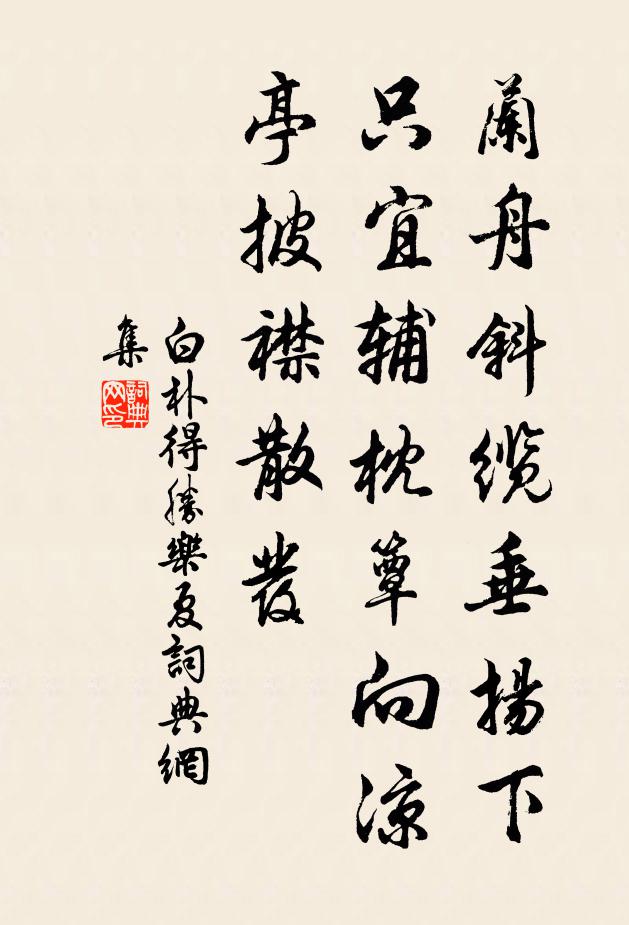 蘭舟斜纜垂揚下
只宜輔枕簟向涼
亭披襟散髮
白朴得勝樂夏詞典網
集
詞典網印